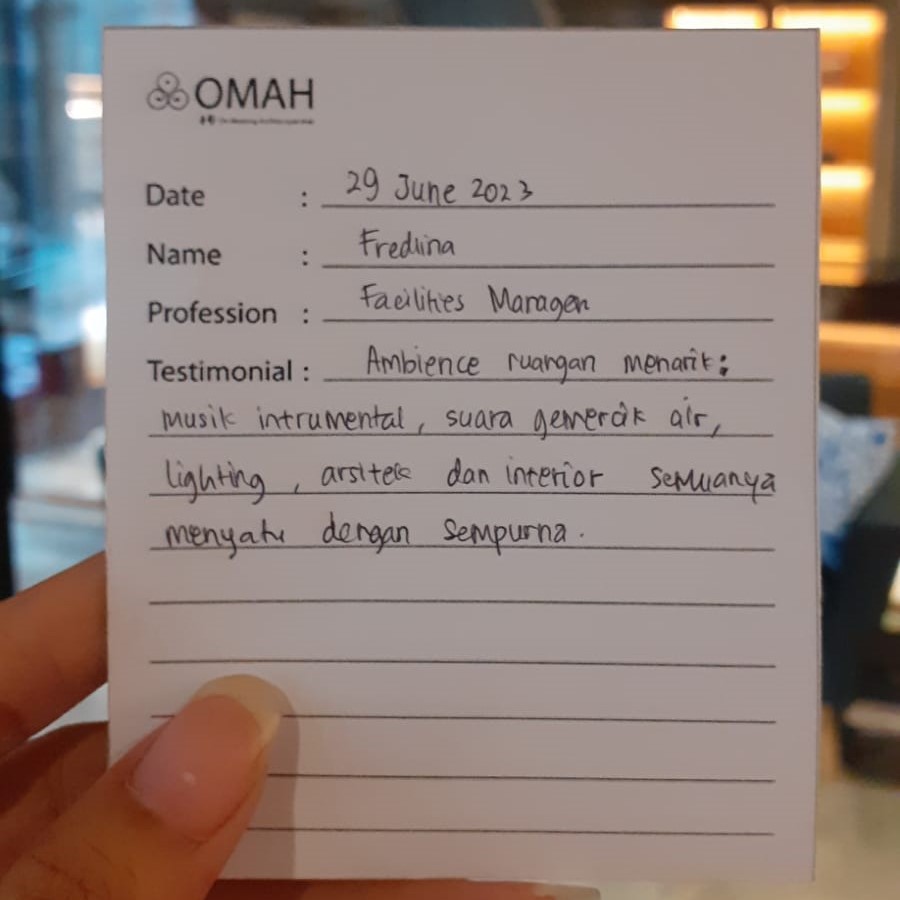 OMAH
Date : 29 June 2023
Name : Fredlina
Profession : Facilities Manager
Testimonial : Ambience ruangan menarik :
musik intrumental, suara gemercik air,
lighting, arsitek dan interior semuanya
menyatu dengan sempurna.